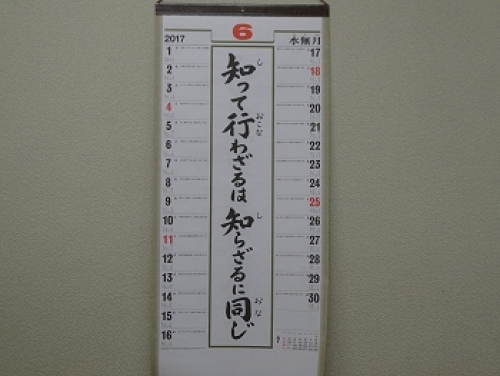 2017
6
水無月
1
2
3
4
5
6
7
8
9
10
11
12
13
14
15
16
知って行わざるは知らざるに同じ
し
おこな
し
おな
17
18
19
20
21
22
23
24
25
26
27
28
29
30
7